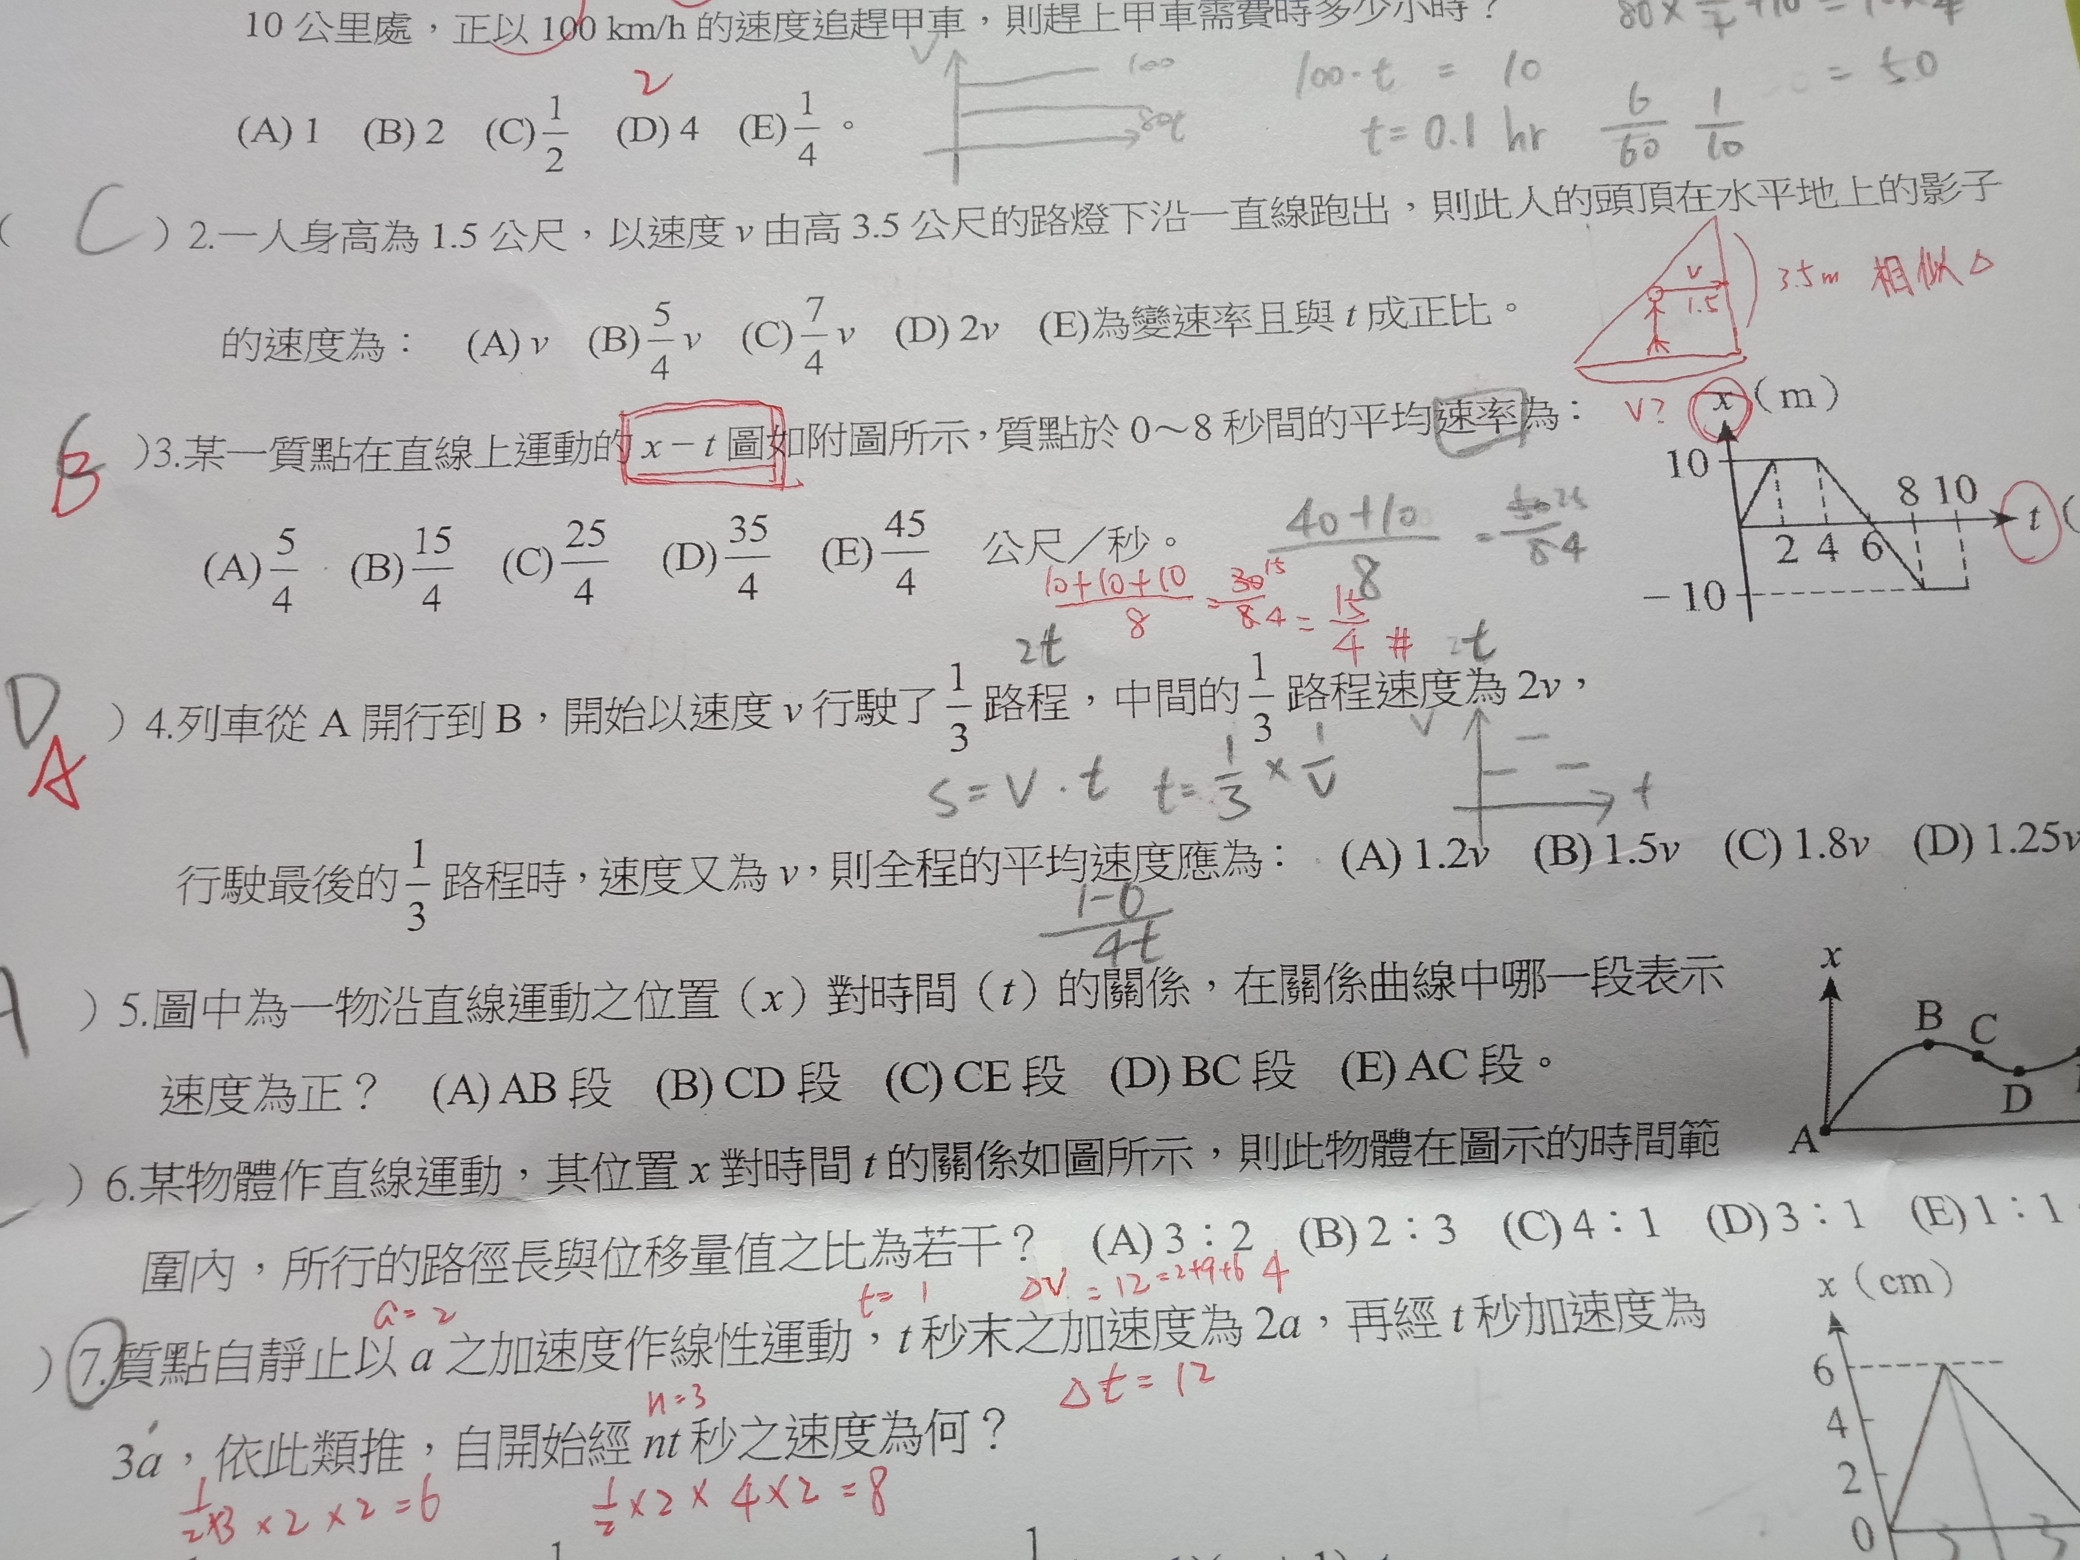 10 公里處，正以 100 km/h 的速度追趕甲車，則趕上甲車需費時多少小時？
(A) 1 (B) 2 (C) 1/2 (D) 4 (E) 1/4 。
2
V
100
80t
100·t = 10
t = 0.1 hr 6/60 1/10
= 50
C ) 2.一人身高為 1.5 公尺，以速度 v 由高 3.5 公尺的路燈下沿一直線跑出，則此人的頭頂在水平地上的影子
的速度為： (A) v (B) 5/4 v (C) 7/4 v (D) 2v (E)為變速率且與 t 成正比。
V
1.5
3.5m 相似△
B )3.某一質點在直線上運動的 x－t 圖如附圖所示，質點於 0～8 秒間的平均速率為：
V?
x（m）
10
8 10
t
2 4 6
－10
(A) 5/4 (B) 15/4 (C) 25/4 (D) 35/4 (E) 45/4 公尺／秒。
40+10/8 =
10+10+10/8 = 30/8 = 15/4 #
2t
2t
D
A
) 4.列車從 A 開行到 B，開始以速度 v 行駛了 1/3 路程，中間的 1/3 路程速度為 2v，
S = V · t t = 1/3 × 1/V
V
t
行駛最後的 1/3 路程時，速度又為 v，則全程的平均速度應為： (A) 1.2v (B) 1.5v (C) 1.8v (D) 1.25v
1-0/4t
A ) 5.圖中為一物沿直線運動之位置（x）對時間（t）的關係，在關係曲線中哪一段表示
速度為正？ (A) AB 段 (B) CD 段 (C) CE 段 (D) BC 段 (E) AC 段。
x
B C
D
A
) 6.某物體作直線運動，其位置 x 對時間 t 的關係如圖所示，則此物體在圖示的時間範
圍內，所行的路徑長與位移量值之比為若干？ (A) 3：2 (B) 2：3 (C) 4：1 (D) 3：1 (E) 1：1
x（cm）
6
4
2
0
a = 2
t = 1
ΔV = 12
) 7.質點自靜止以 a 之加速度作線性運動，t 秒末之加速度為 2a，再經 t 秒加速度為
n = 3
Δt = 12
3a，依此類推，自開始經 nt 秒之速度為何？
1/2 × 3 × 2 × 2 = 6
1/2 × 2 × 4 × 2 = 8